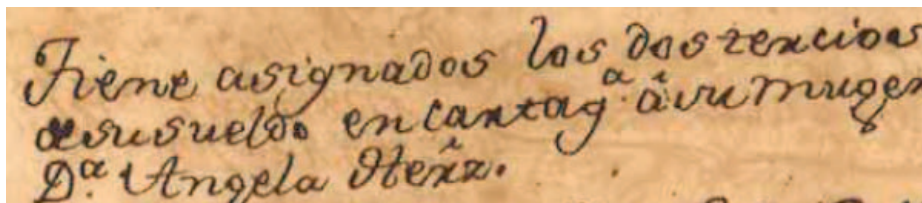 Tiene asignados los dos tercios
de su sueldo en Cartag.ª â su muger
D.ª Angela Herñz.